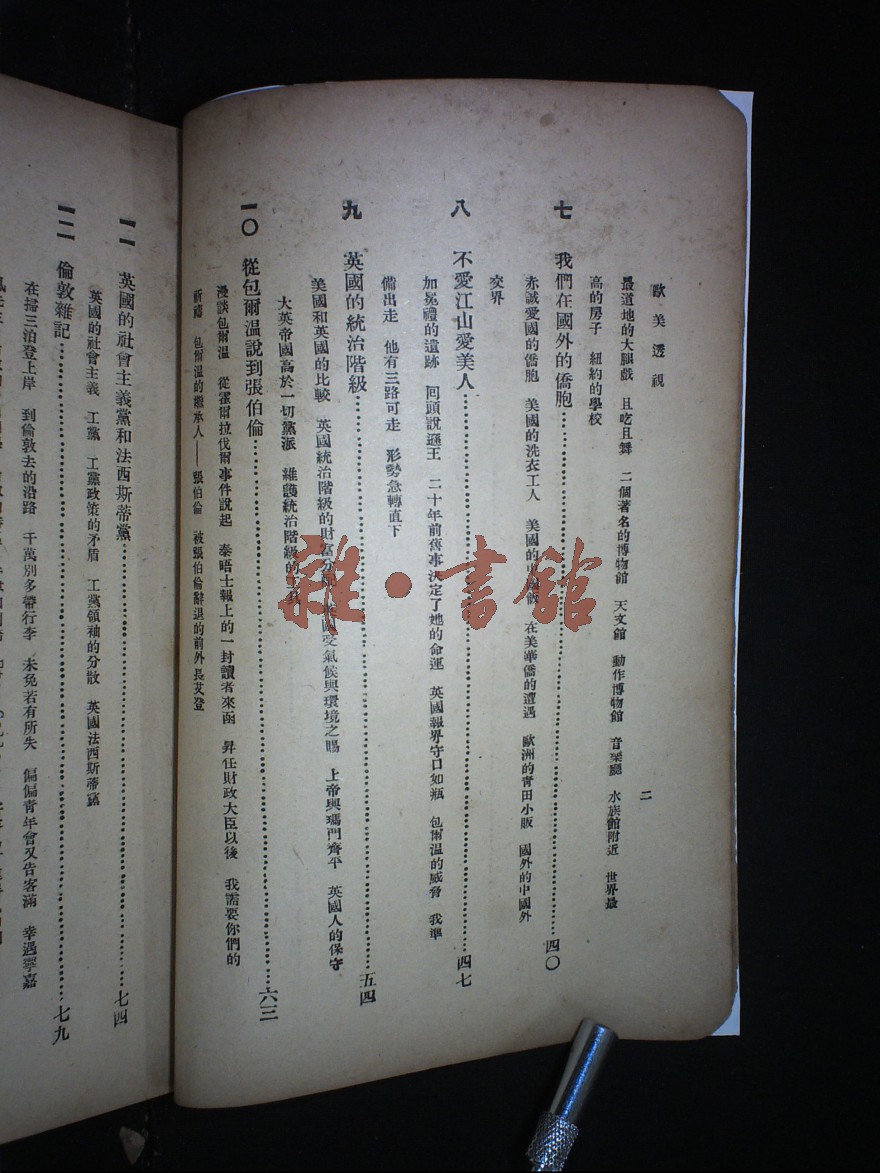 歐美透視
二
最道地的大腿戲　且吃且舞　二個著名的博物館　天文館　動作博物館　音樂廳　水族館附近　世界最
高的房子　紐約的學校
七　我們在國外的僑胞……四〇
赤誠愛國的僑胞　美國的洗衣工人　美國的中國飯　在美華僑的遭遇　歐洲的青田小販　國外的中國外
交界
八　不愛江山愛美人……四七
加冕禮的遺跡　回頭說遜王　二十年前舊事決定了她的命運　英國報界守口如瓶　包爾溫的威脅　我準
備出走　他有三路可走　形勢急轉直下
九　英國的統治階級……五四
美國和英國的比較　英國統治階級的財富分　國受氣候與環境之賜　上帝與瑪門齊平　英國人的保守
大英帝國高於一切黨派　維護統治階級的
一〇　從包爾溫說到張伯倫……六三
漫談包爾溫　從霍爾拉伐爾事件說起　泰晤士報上的一封讀者來函　昇任財政大臣以後　我需要你們的
祈禱　包爾溫的繼承人——張伯倫　被張伯倫辭退的前外長艾登
一一　英國的社會主義黨和法西斯蒂黨……七四
英國的社會主義　工黨　工黨政策的矛盾　工黨領袖的分散　英國法西斯蒂黨
一二　倫敦雜記……七九
在掃三泊登上岸　到倫敦去的沿路　千萬別多帶行李　未免若有所失　偏偏青年會又告客滿　幸遇寧嘉
雜·書館